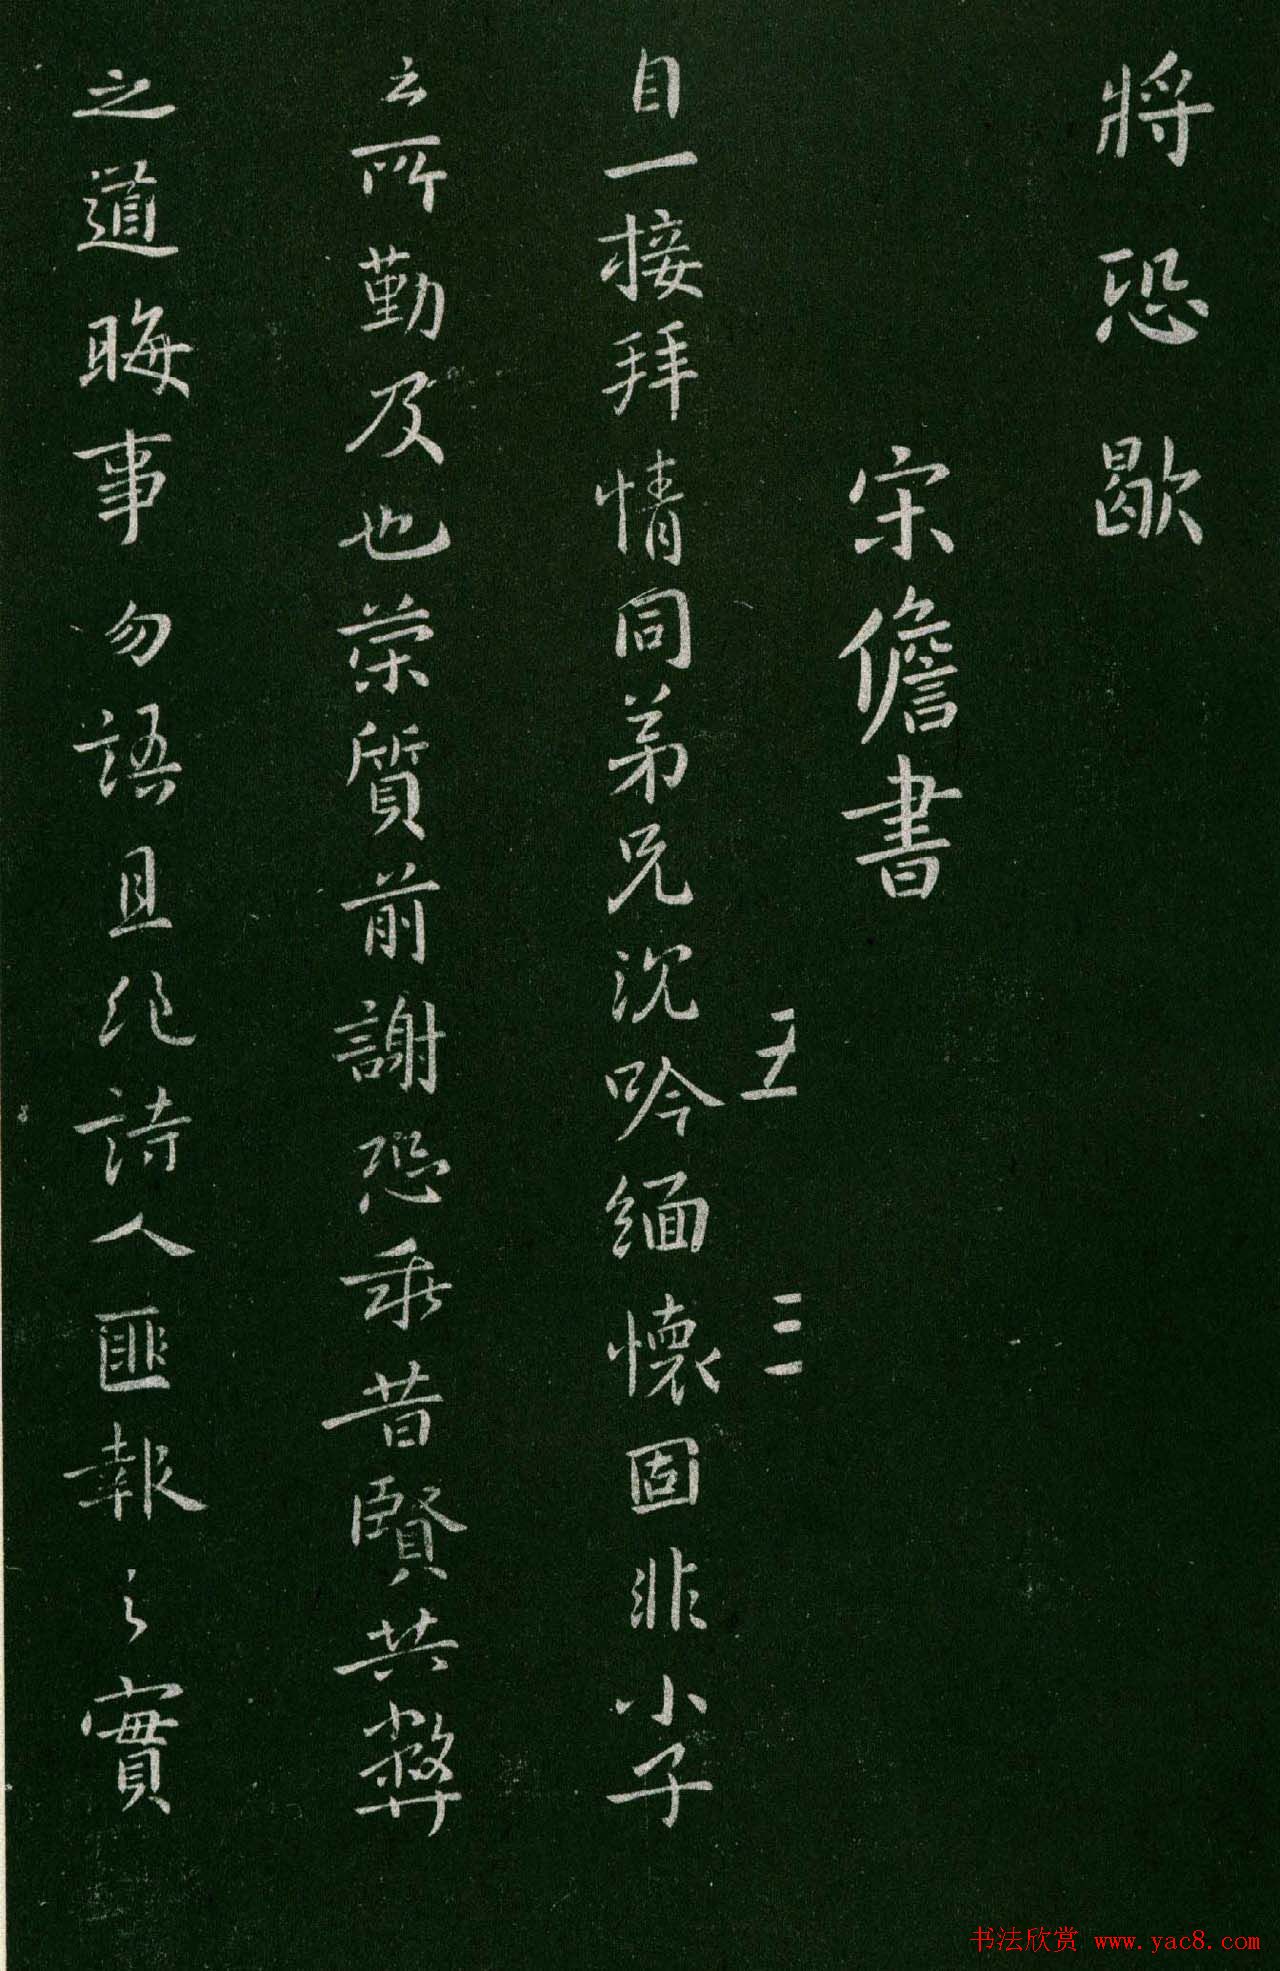 將恐歇
宋儋書
五 三
自一接拜情同弟兄沉吟緬懷固非小子
之所勤及也榮質前謝恐乖昔賢共弊
之道晦事勿語且絶詩人匪報之實
书法欣赏 www.yac8.com